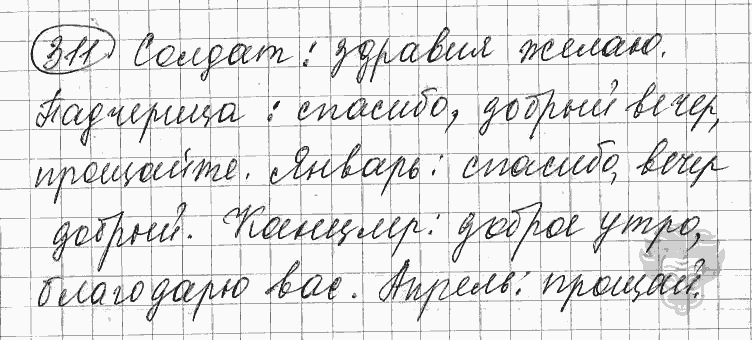 311 Солдат: здравия желаю.
Падчерица: спасибо, добрый вечер,
прощайте. Январь: спасибо, вечер
добрый. Канцлер: доброе утро,
благодарю вас. Апрель: прощай.